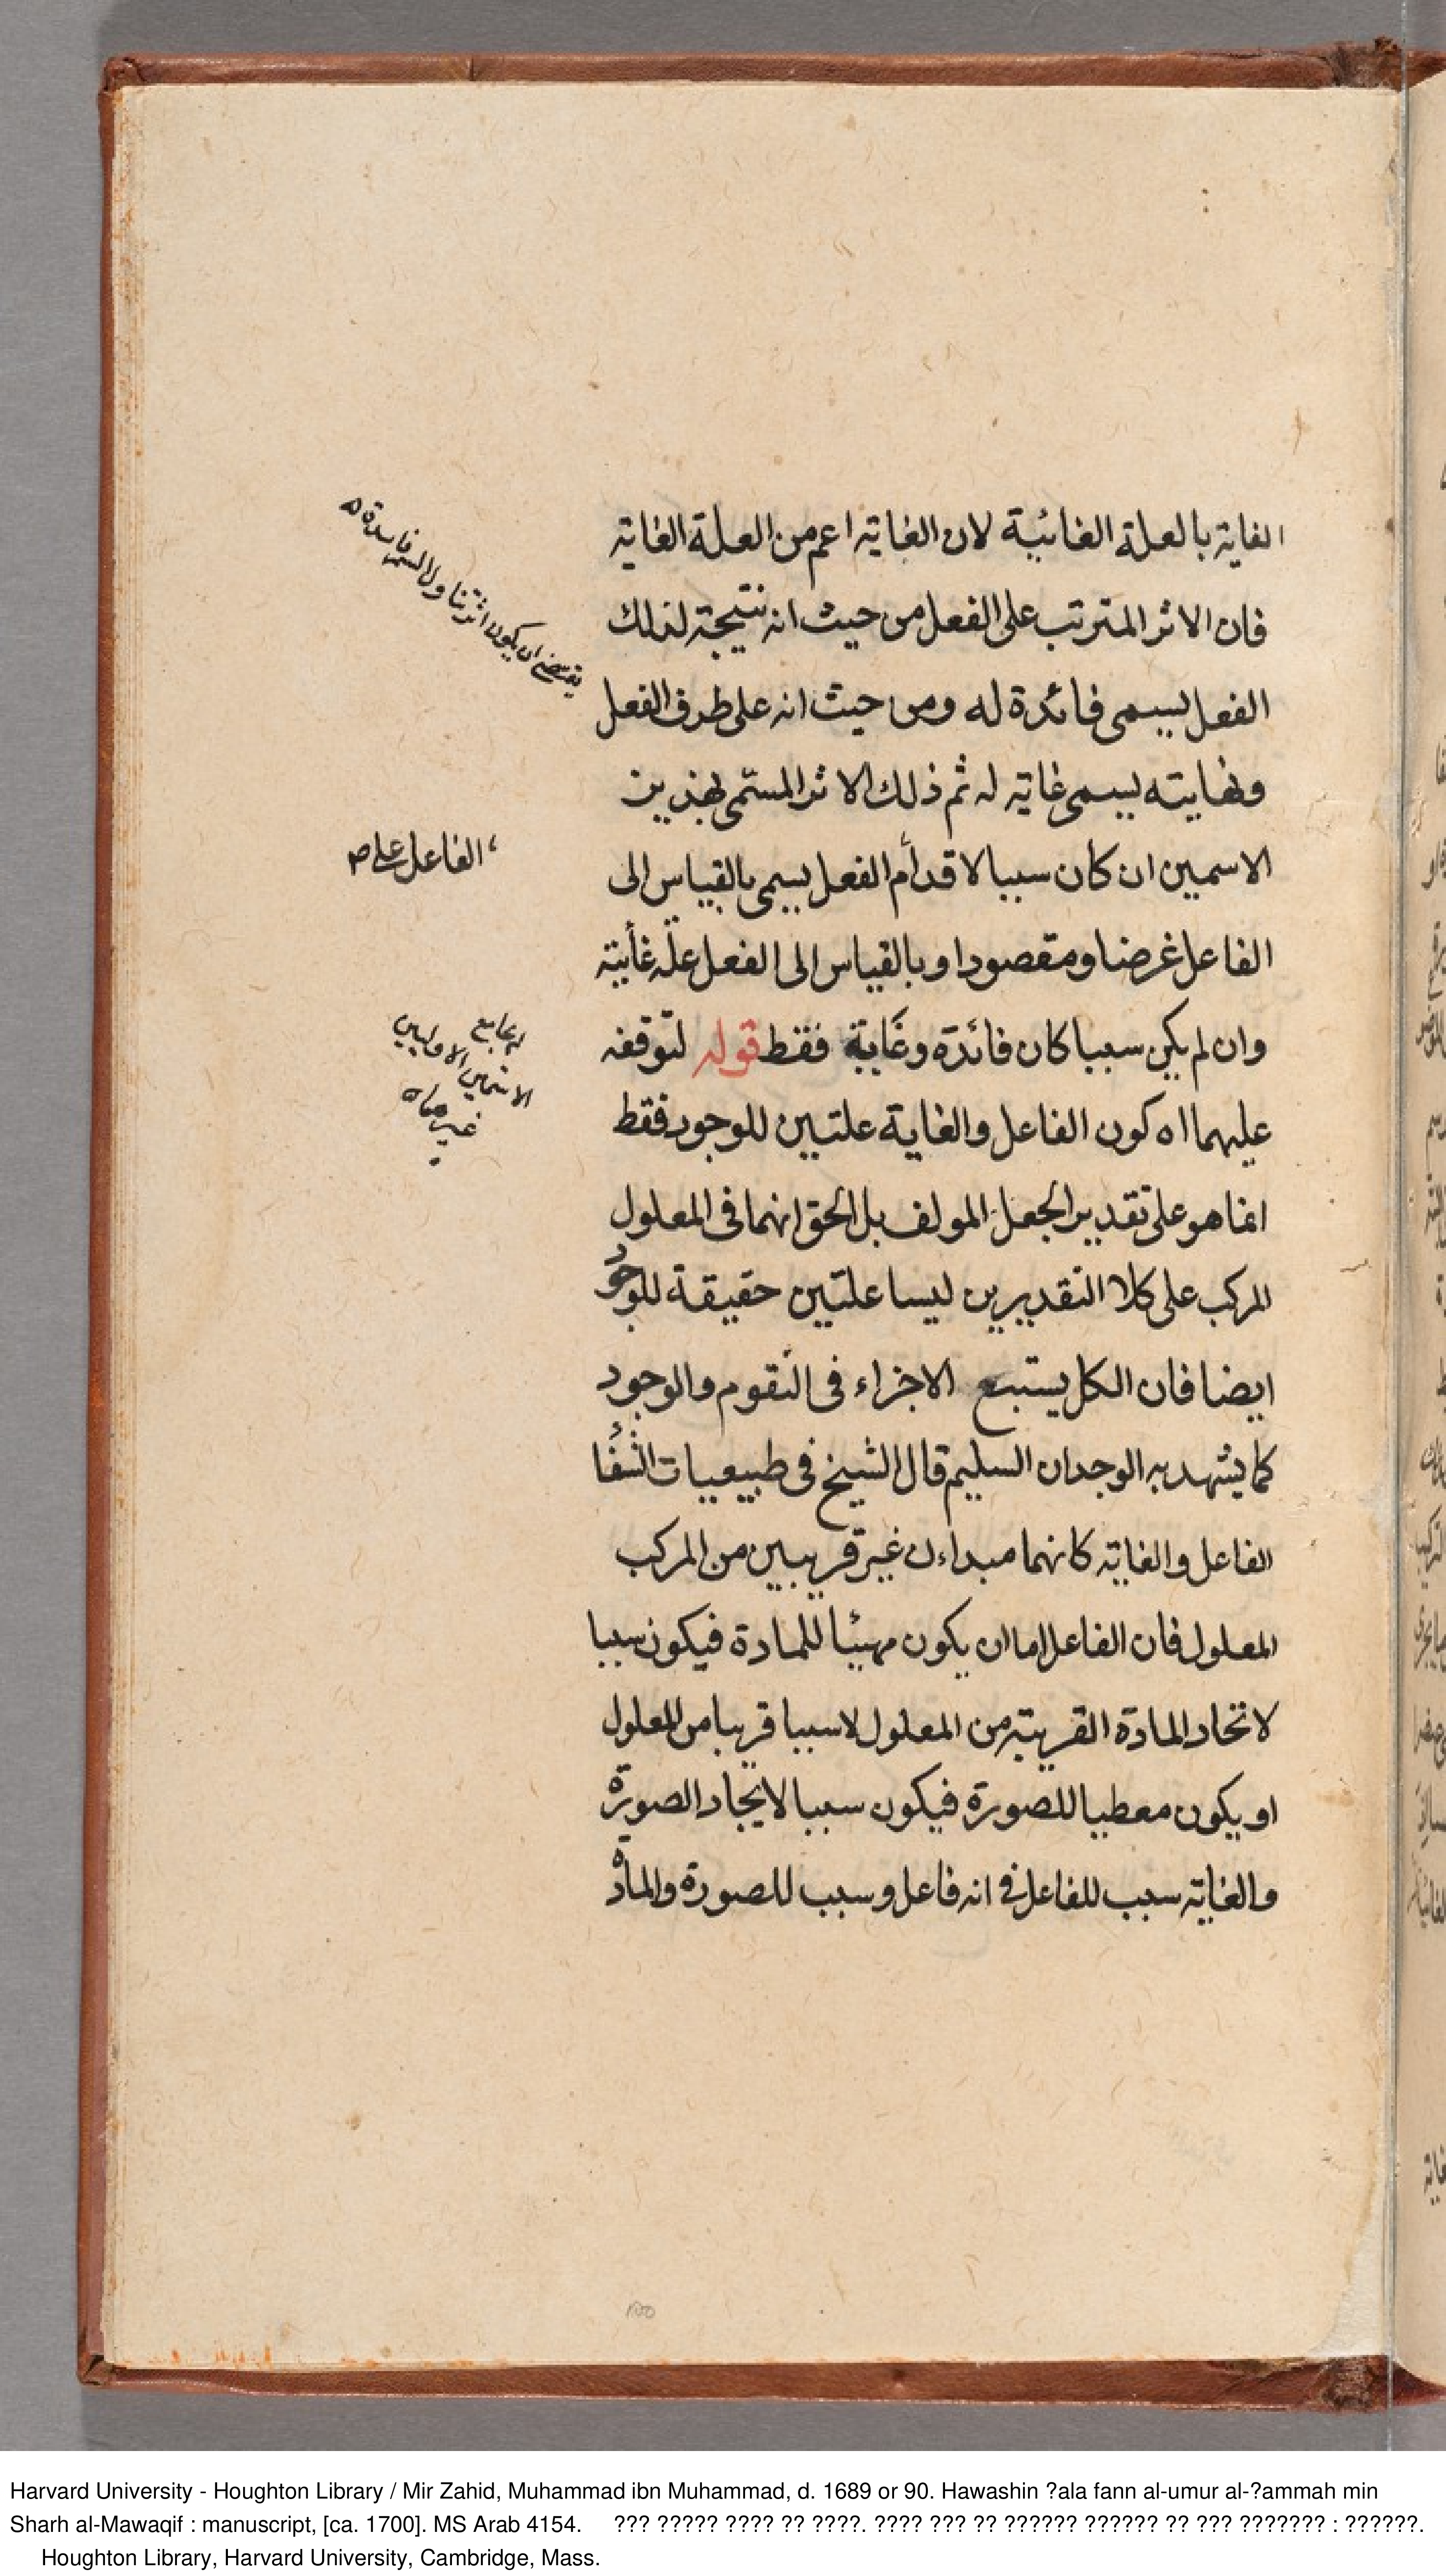 الغاية بالعلة الغائية لان الغاية اعم من العلة الغاية
فان الاثر المترتب على الفعل من حيث انه نتيجة لذلك
الفعل يسمى فائدة له ومن حيث انه على طرف الفعل
ونهايته يسمى غاية له ثم ذلك الاثر المسمّى بهذين
الاسمين ان كان سببا لاقدام الفعل يسمى بالقياس الى
الفاعل غرضا ومقصودا وبالقياس الى الفعل علّة غايية
وان لم يكن سببا كان فائدة وغاية فقط قوله لتوقفه
عليهما اه كون الفاعل والغاية علتين للوجود فقط
انما هو على تقدير الجعل المولف بل الحق انهما فى المعلول
المركب على كلا التقديرين ليسا علتين حقيقة للوجود
ايضا فان الكل يستتبع الاجزاء فى التقوم والوجود
كما يشهد به الوجدان السليم قال الشيخ فى طبيعيات الشفا
الفاعل والغاية كانهما مبداءن غير قريبين من المركب
المعلول فان الفاعل اما ان يكون مهيئا للمادة فيكون سببا
لاتحاد المادة القريبة من المعلول لا سببا قريبا من المعلول
او يكون معطيا للصورة فيكون سببا لايجاد الصورة
والغاية سبب للفاعل فى انه فاعل وسبب للصورة والمادة
ان يكون
الفاعل على
الاسمين الاولين
Harvard University - Houghton Library / Mir Zahid, Muhammad ibn Muhammad, d. 1689 or 90. Hawashin ?ala fann al-umur al-?ammah min
Sharh al-Mawaqif : manuscript, [ca. 1700]. MS Arab 4154. ??? ????? ???? ?? ????. ???? ??? ?? ?????? ?????? ?? ??? ??????? : ??????.
Houghton Library, Harvard University, Cambridge, Mass.